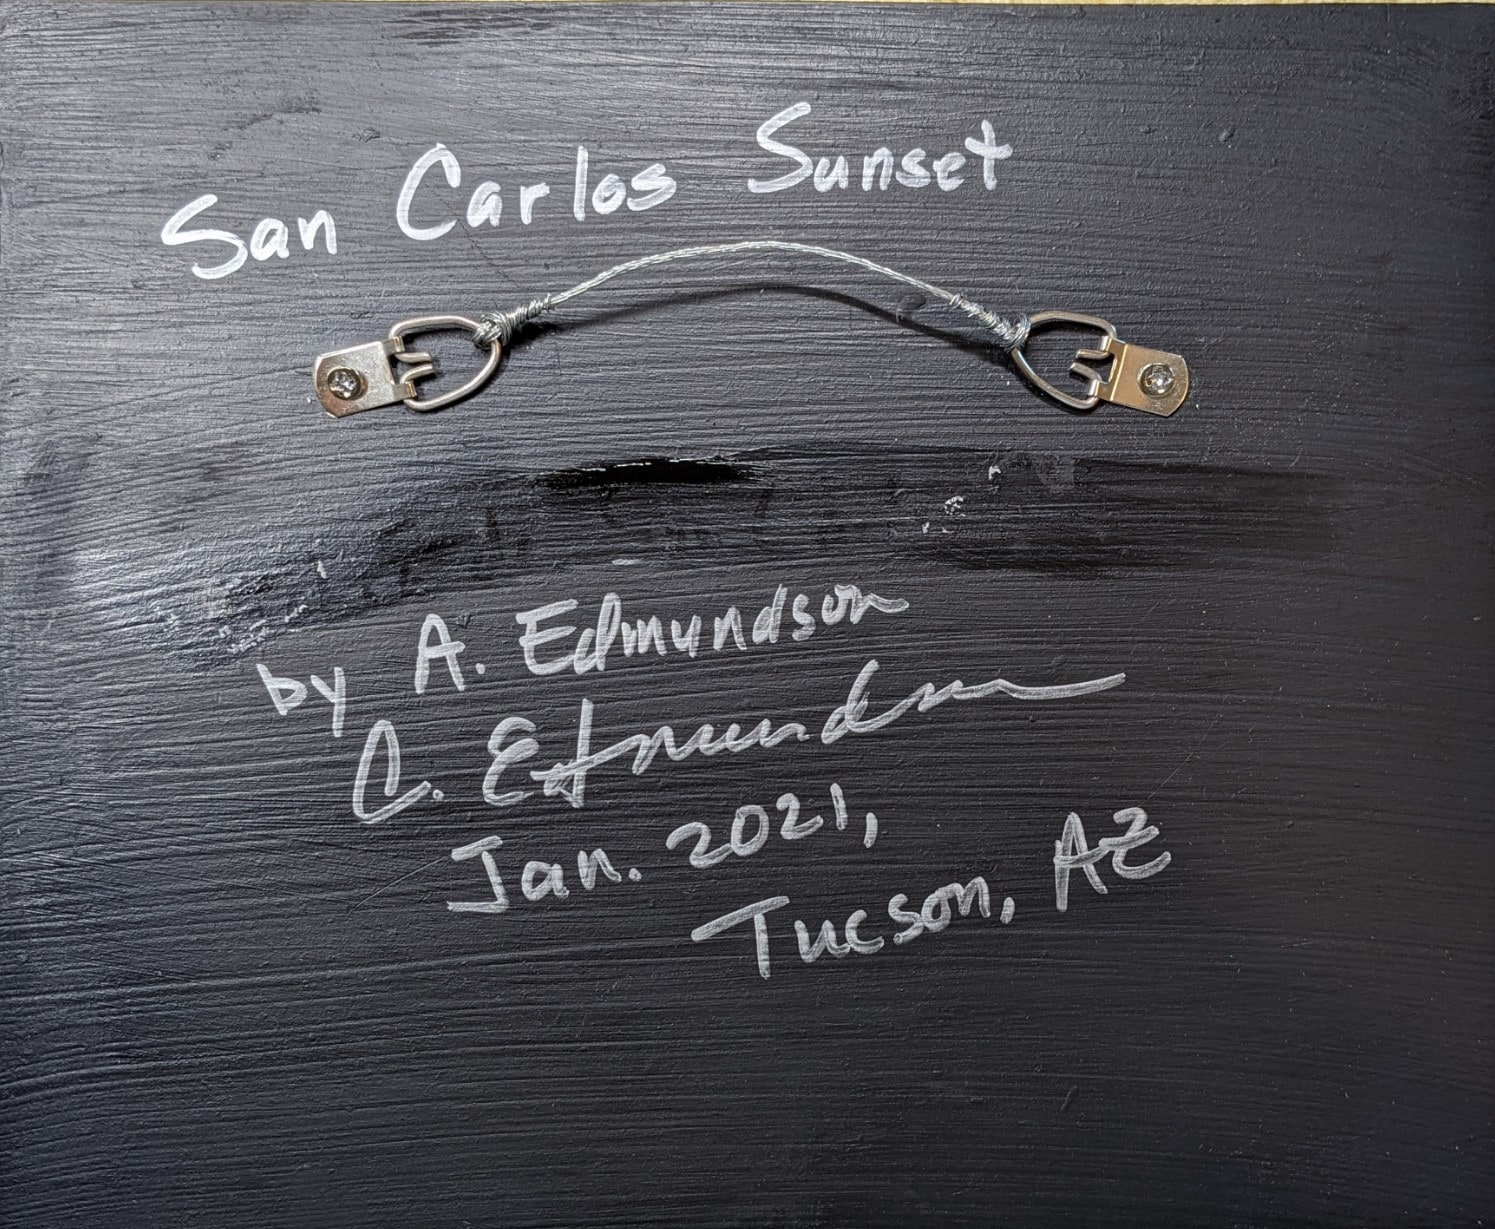 San Carlos Sunset
by A. Edmundson
C. Edmundson
Jan. 2021,
Tucson, AZ